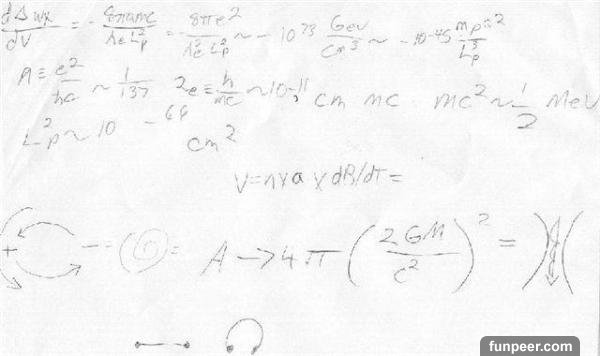 dΔwx/dV = - 8παmc/λe L²p = - 8πe²/λ²e L²p ~ - 10⁷³ GeV/cm³ ~ - 10⁻⁴⁵ mpc²/L³p
A ≡ e²/ħc ~ 1/137 λe ≡ ħ/mc ~ 10⁻¹¹ cm mc mc² ~ 1/2 MeV
L²p ~ 10⁻⁶⁶ cm²
V = n x a x dB/dT =
+ − = = A → 4π (2GM/c²)² = ) (
funpeer.com